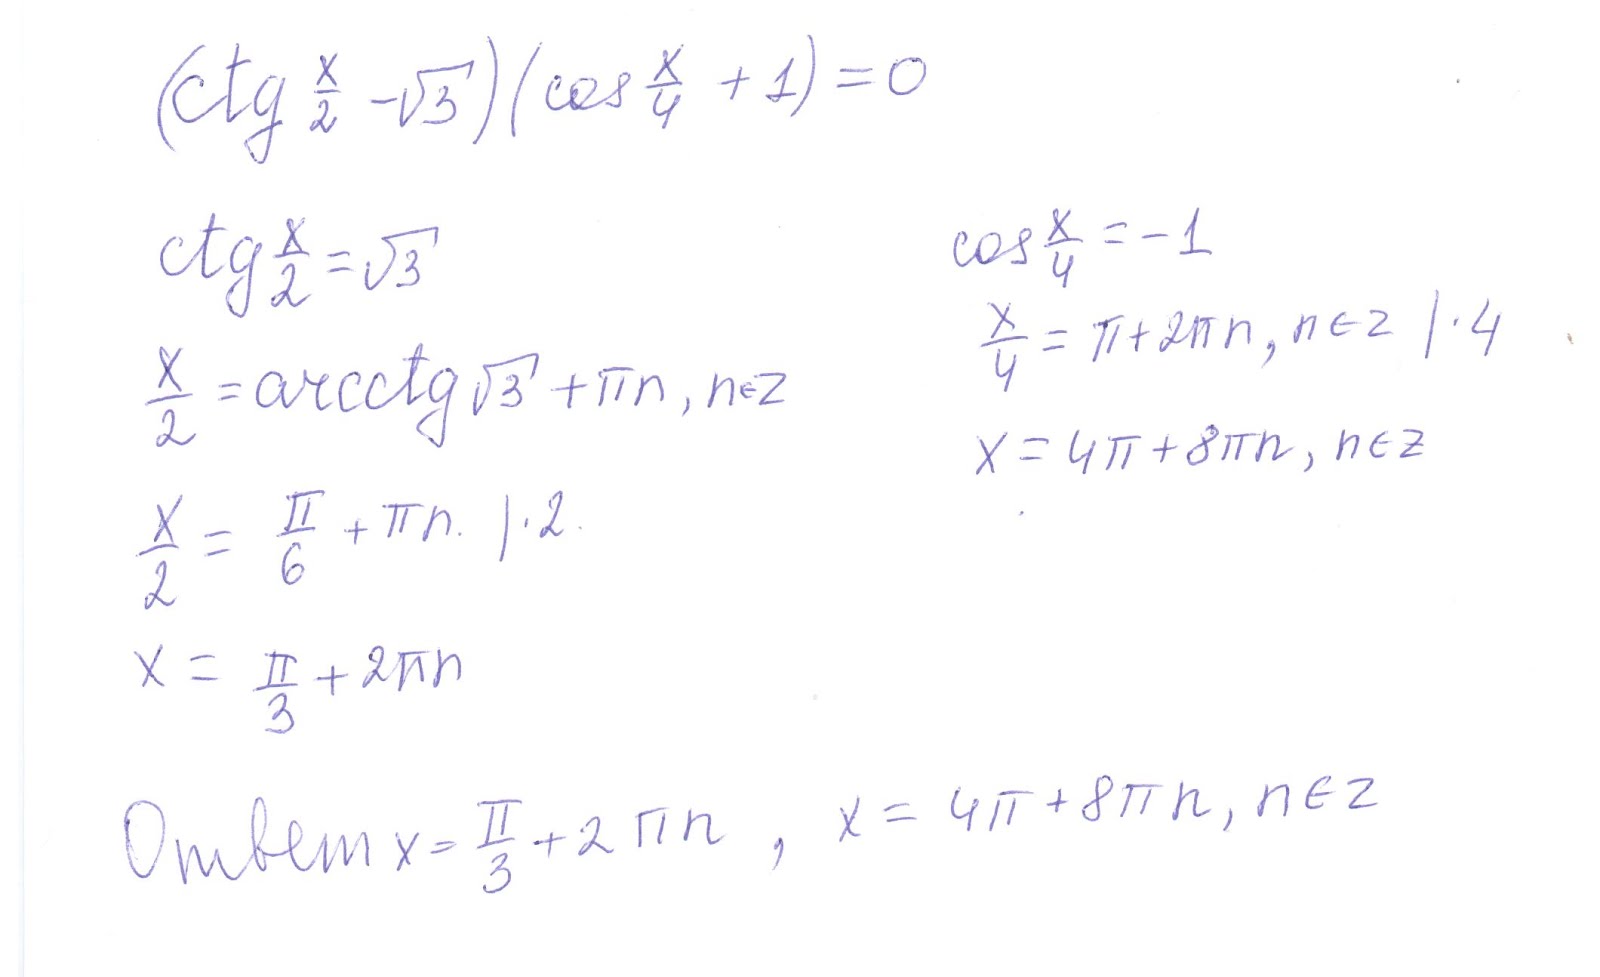 (ctg x/2 - √3)(cos x/4 + 1) = 0
ctg x/2 = √3
x/2 = arcctg √3 + πn, n∈z
x/2 = π/6 + πn. |·2
x = π/3 + 2πn
cos x/4 = -1
x/4 = π + 2πn, n∈z |·4
x = 4π + 8πn, n∈z
Ответ x = π/3 + 2πn, x = 4π + 8πn, n∈z